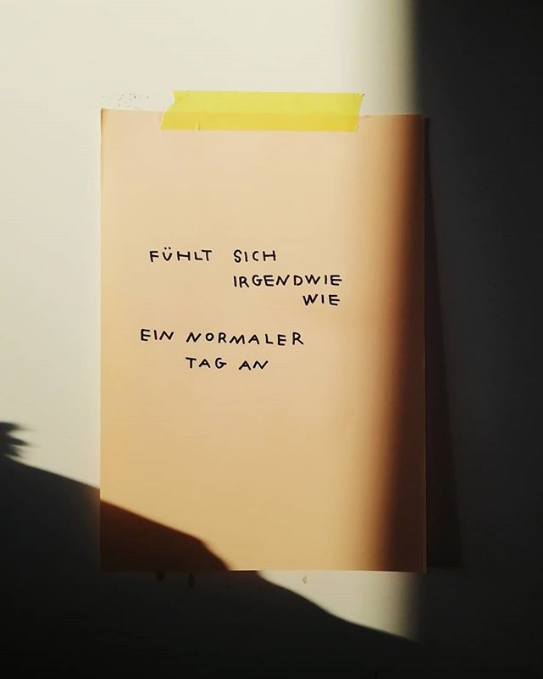 FÜHLT SICH
IRGENDWIE
WIE
EIN NORMALER
TAG AN